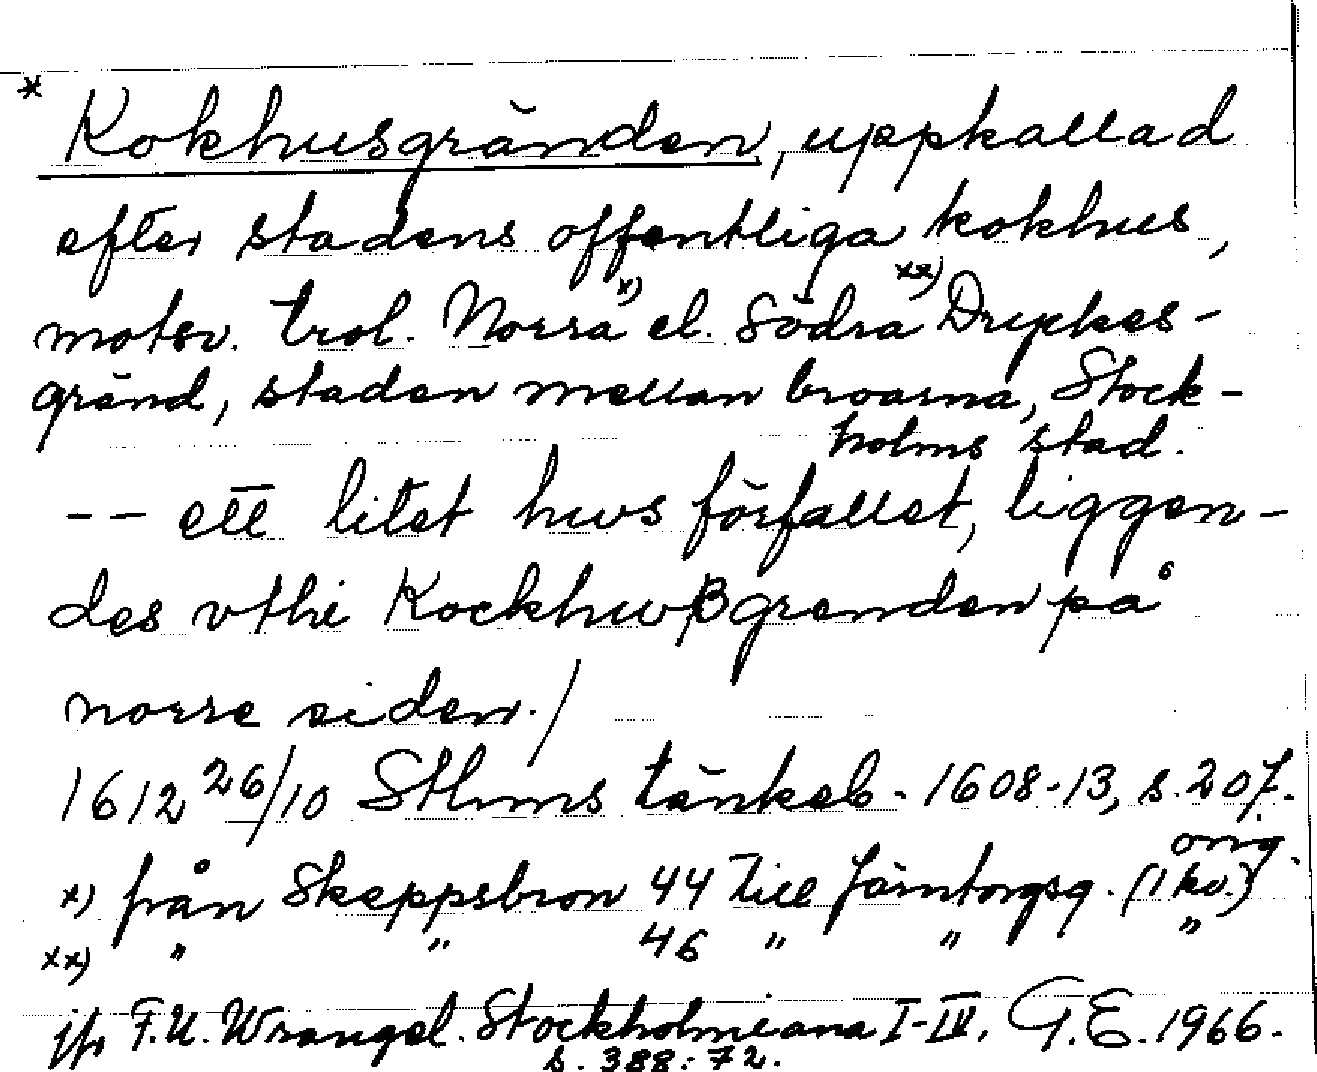 * Kokhusgränden, uppkallad
efter stadens offentliga kokhus,
motsv. trol. Norra x) el. Södra xx) Dryckes-
gränd, staden mellan broarna, Stock-
holms stad.
-- ett litet hws förfallet, liggen-
des vthi Kockhwßgrenden på
norre siden./
1612 26/10 Sthms tänkeb. 1608-13, s. 207.
orig.
x) från Skeppsbron 44 till Järntorgsg. (1 kv.)
xx) " " 46 " " "
jfr F.U. Wrangel. Stockholmiana I-IV. G.E. 1966.
s. 388:72.